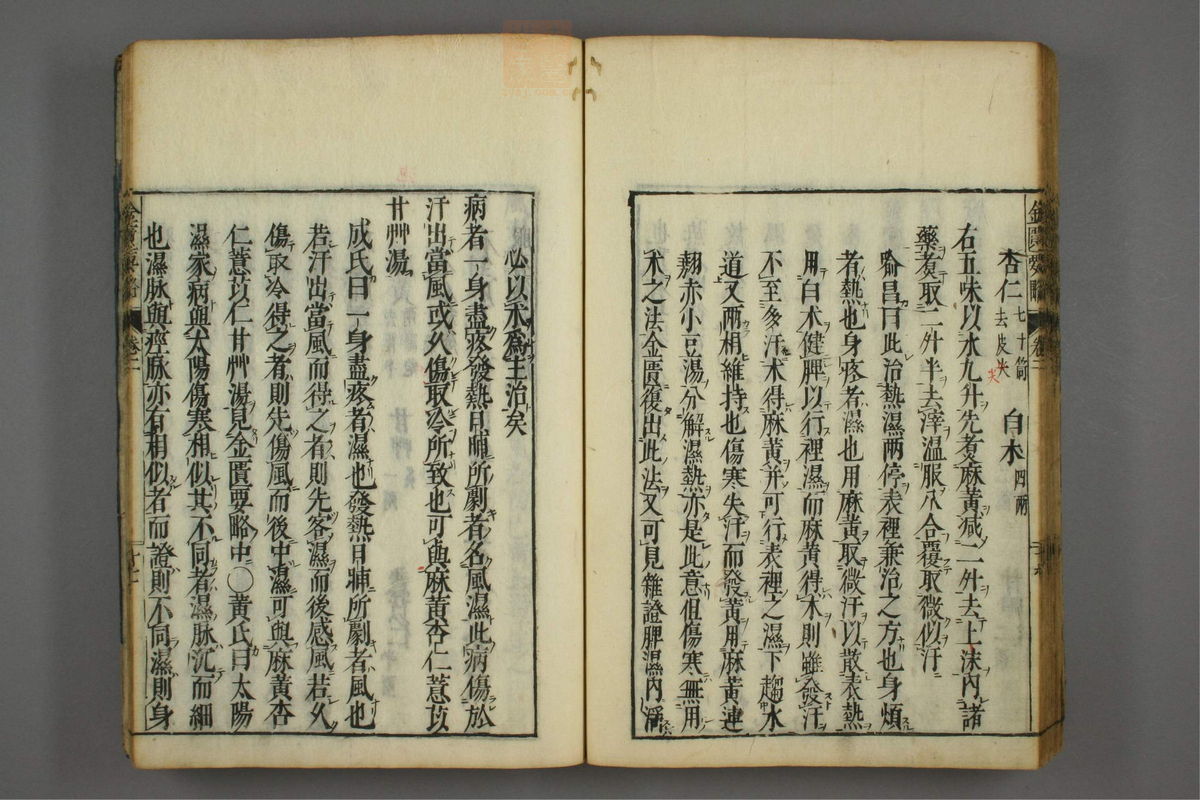 杏仁七十箇去皮尖 白朮四兩
右五味以水九升先煮麻黃減二升去上沫內諸
藥煮取二升半去滓溫服八合覆取微似汗
喻昌曰此治熱濕兩停表裡兼治之方也身煩
者熱也身疼者濕也用麻黃取微汗以散表熱
用白朮健脾以行裡濕而麻黃得朮則雖發汗
不至多汗朮得麻黃并可行表裡之濕下趨水
道又兩相維持也傷寒失汗而發黃用麻黃連
翹赤小豆湯分解濕熱亦是此意但傷寒無用
朮之法金匱復出此法又可見雜證脾濕內淫
必以朮爲主治矣
病者一身盡疼發熱日晡所劇者名風濕此病傷於
汗出當風或久傷取冷所致也可與麻黃杏仁薏苡
甘艸湯
成氏曰一身盡疼者濕也發熱日晡所劇者風也
若汗出當風而得之者則先客濕而後感風若久
傷取冷得之者則先傷風而後中濕可與麻黃杏
仁薏苡仁甘艸湯見金匱要略中〇黃氏曰太陽
濕家病與太陽傷寒相似其不同者濕脉沉而細
也濕脉與痙脉亦有相似者而證則不同濕則身
金匱要略 卷二